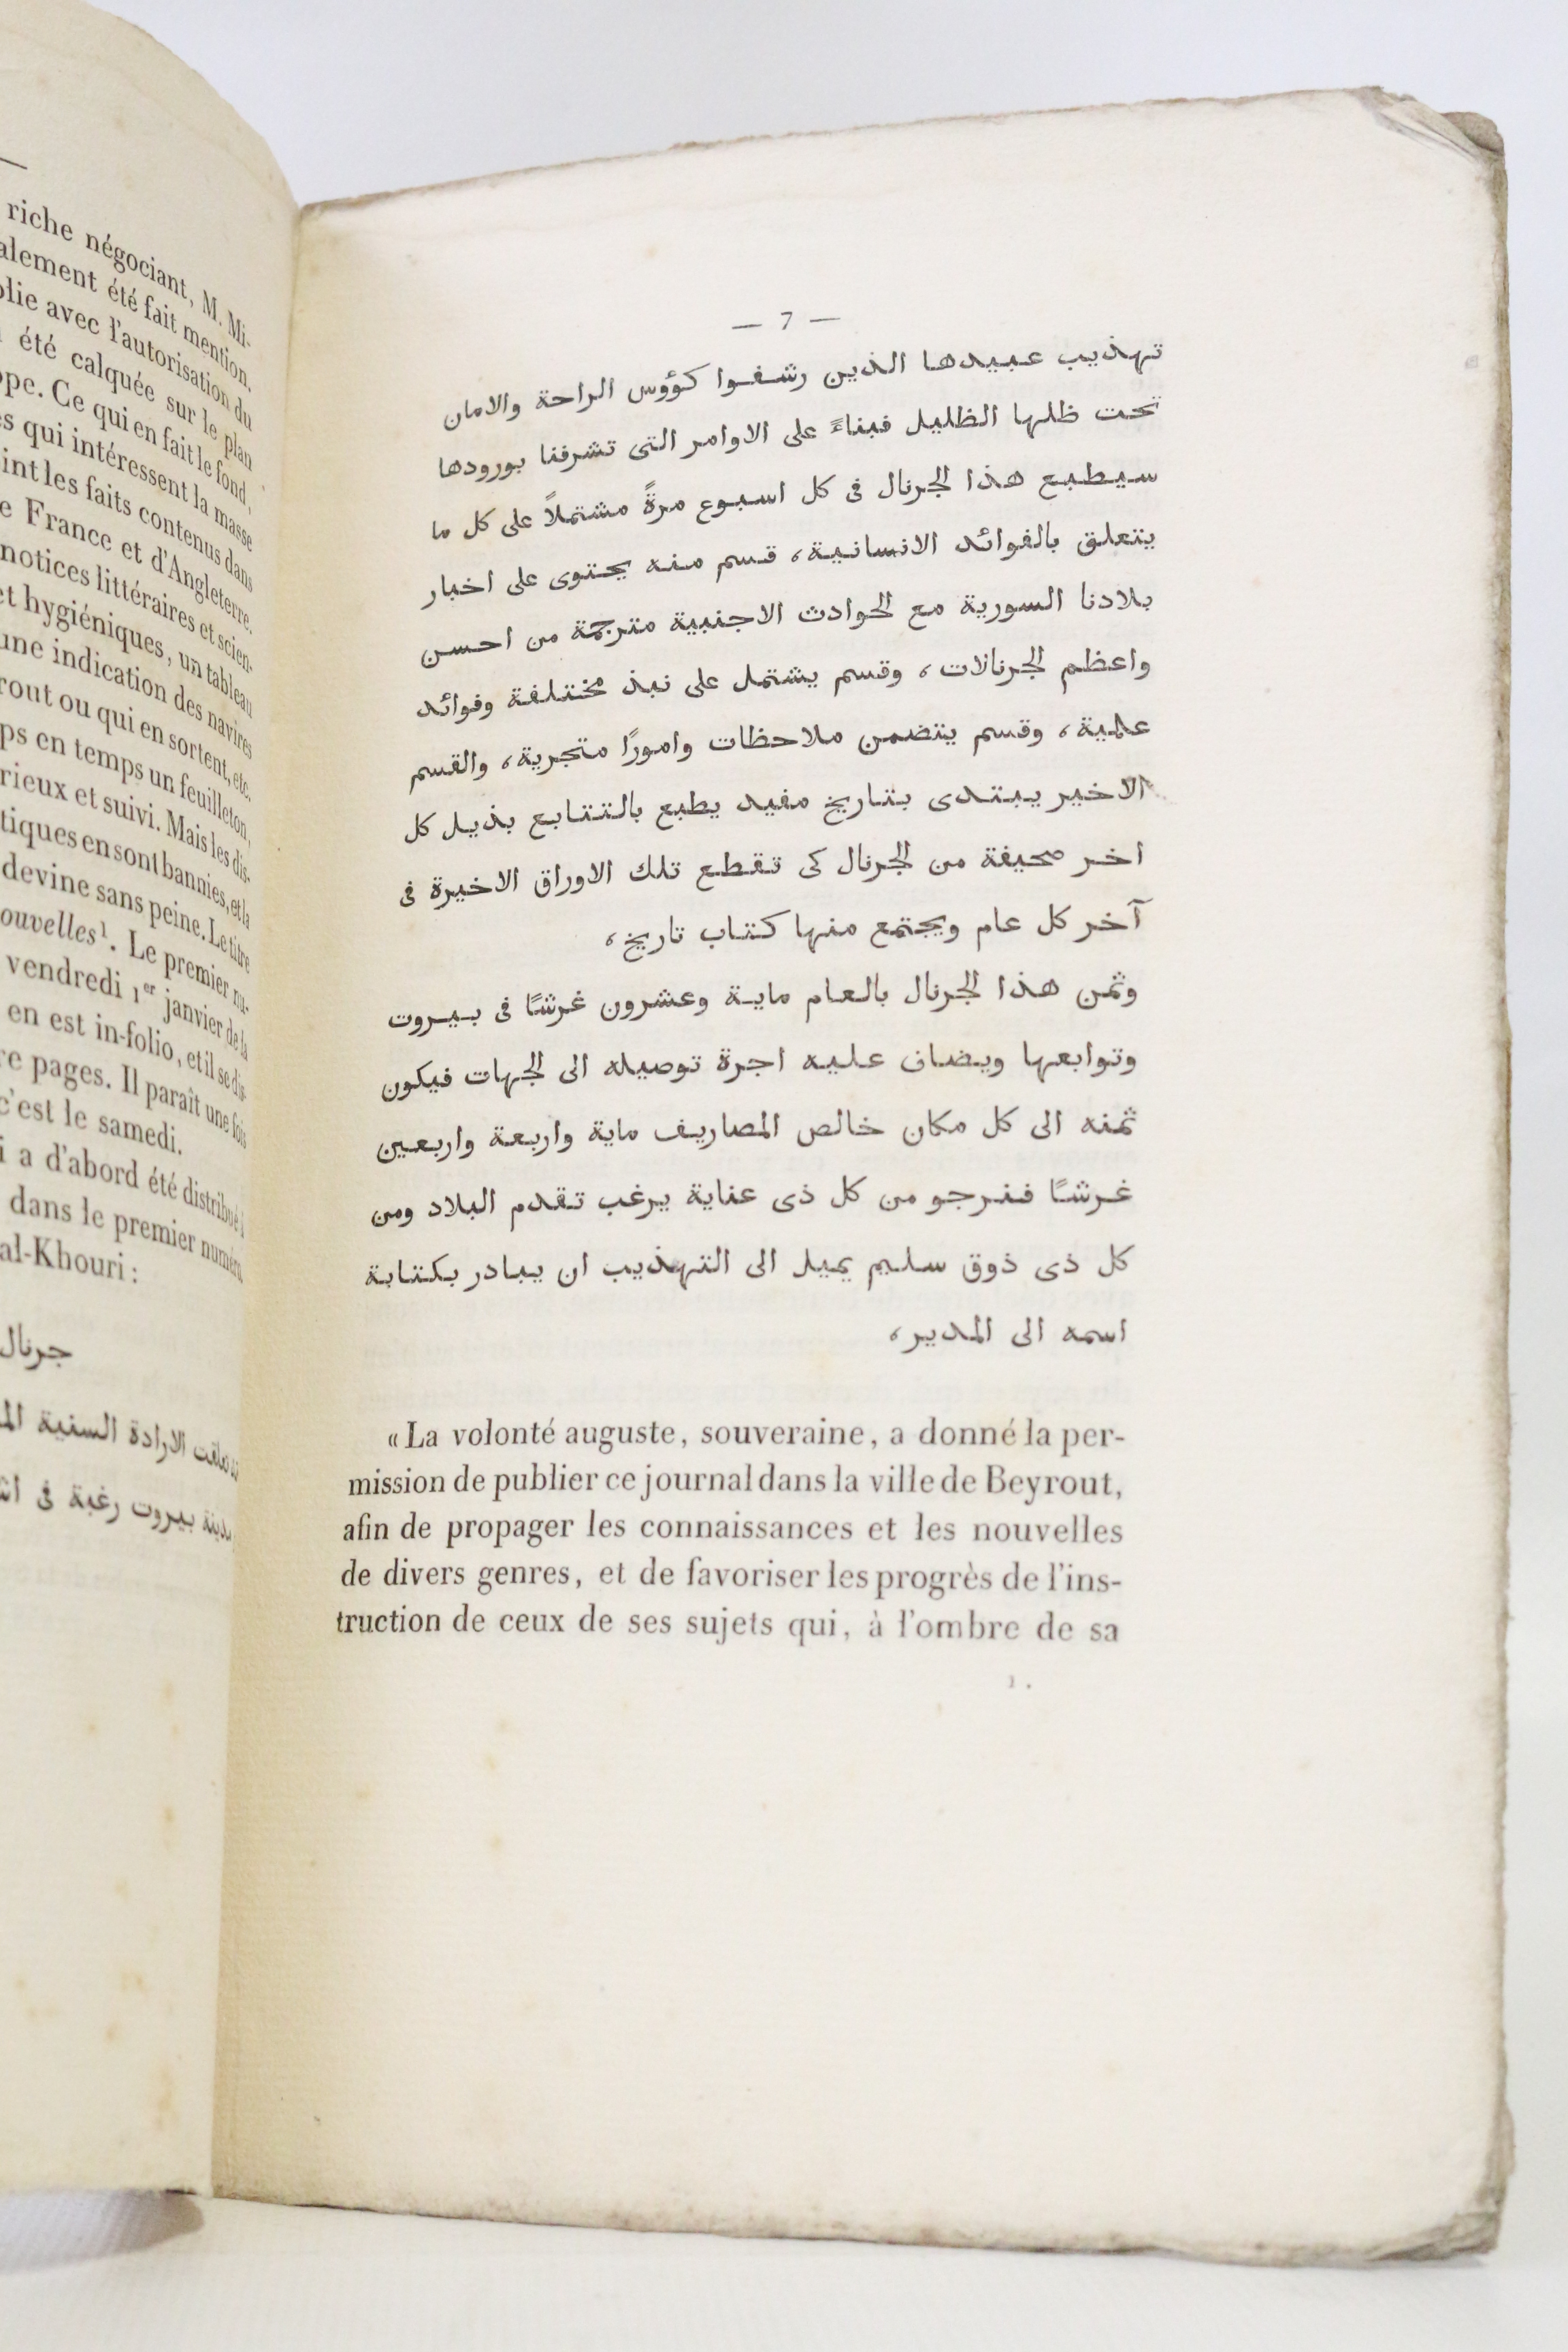 —
riche négociant, M. Mi-
alement été fait mention.
olie avec l'autorisation du
été calquée sur le plan
ope. Ce qui en fait le fond,
es qui intéressent la masse
int les faits contenus dans
e France et d'Angleterre.
notices littéraires et scien-
et hygiéniques, un tableau
une indication des navires
rout ou qui en sortent, etc.
ps en temps un feuilleton,
rieux et suivi. Mais les dis-
tiques en sont bannies, et la
devine sans peine. Le titre
ouvelles¹. Le premier nu-
vendredi 1er janvier de la
en est in-folio, et il se dis-
re pages. Il paraît une fois
c'est le samedi.
i a d'abord été distribué
dans le premier numéro
al-Khouri :
جرنال
الارادة السنية
بيروت رغبة فى
— 7 —
تهذيب عبيدها الذين رشفوا كؤوس الراحة والامان
تحت ظلها الظليل فبناءً على الاوامر التى تشرفنا بورودها
سيطبع هذا الجرنال فى كل اسبوع مرةً مشتملاً على كل ما
يتعلق بالفوائد الانسانية، قسم منه يحتوى على اخبار
بلادنا السورية مع الحوادث الاجنبية مترجمة من احسن
واعظم الجرنالات، وقسم يشتمل على نبذ مختلفة وفوائد
علمية، وقسم يتضمن ملاحظات وامورًا متجرية، والقسم
الاخير يبتدى بتاريخ مفيد يطبع بالتتابع بذيل كل
اخر صحيفة من الجرنال كى تقطع تلك الاوراق الاخيرة فى
آخر كل عام ويجتمع منها كتاب تاريخ،
وثمن هذا الجرنال بالعام ماية وعشرون غرشًا فى بيروت
وتوابعها ويضاف عليه اجرة توصيله الى الجهات فيكون
ثمنه الى كل مكان خالص المصاريف ماية واربعة واربعين
غرشًا فنرجو من كل ذى عناية يرغب تقدم البلاد ومن
كل ذى ذوق سليم يميل الى التهذيب ان يبادر بكتابة
اسمه الى المدير،
« La volonté auguste, souveraine, a donné la per-
mission de publier ce journal dans la ville de Beyrout,
afin de propager les connaissances et les nouvelles
de divers genres, et de favoriser les progrès de l'ins-
truction de ceux de ses sujets qui, à l'ombre de sa
1.